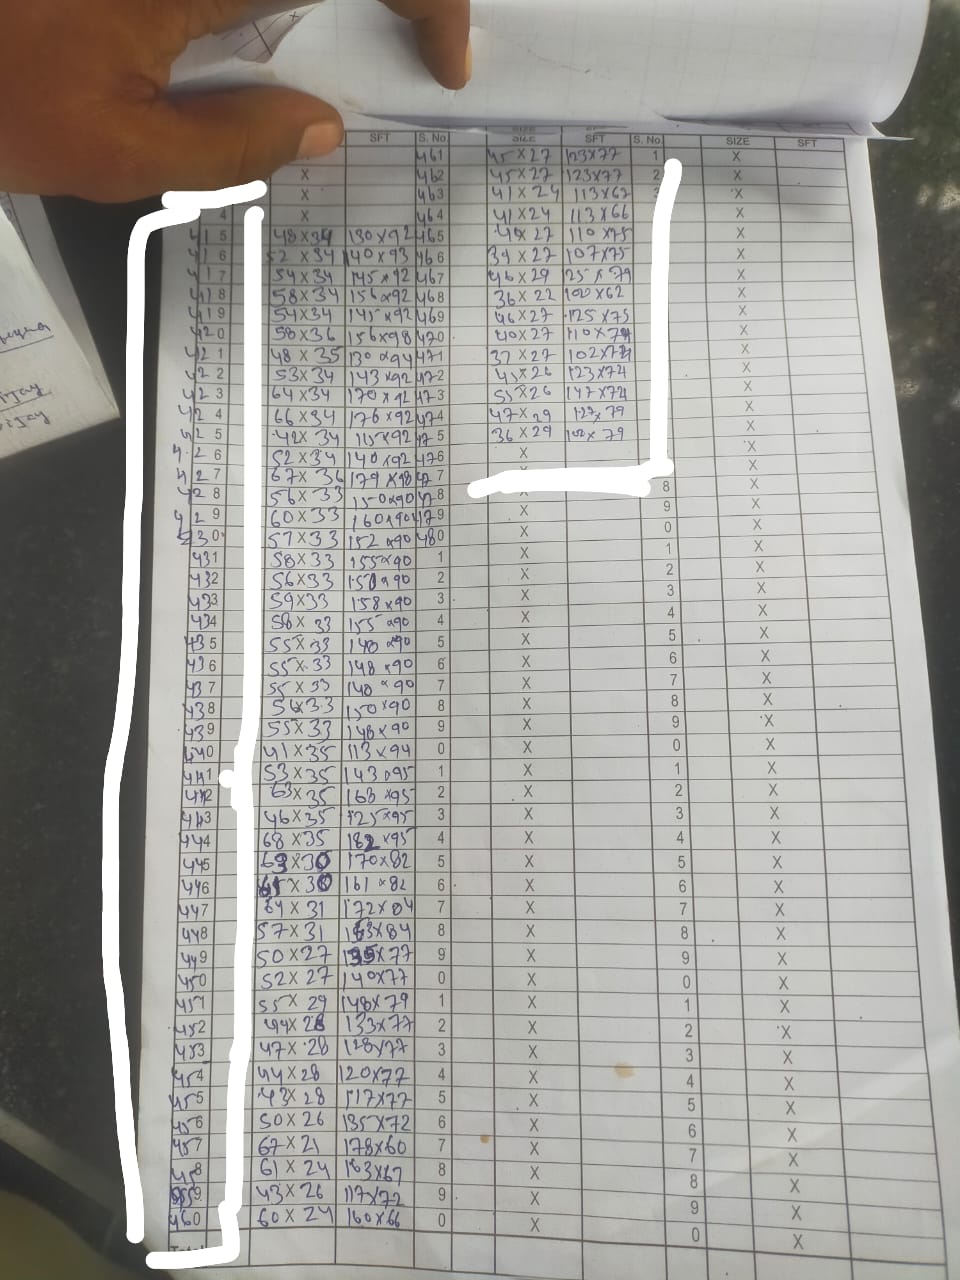 SFT S. No. SIZE SFT S. No. SIZE SFT
X 461 45 X 27 123X77 1 X
X 462 45 X 27 123X77 2 X
X 463 41 X 24 113X67 X
4 X 464 41 X 24 113X66 X
415 48 X 34 130X92 465 27 110X75 X
416 52 X 34 140X93 466 39 X 27 107X75 X
417 54 X 34 145X92 467 46 X 29 125X79 X
418 58 X 34 156X92 468 36 X 22 100X62 X
419 54 X 34 145X92 469 46 X 27 125X75 X
420 58 X 36 156X98 470 40 X 27 110X74 X
421 48 X 35 130X94 471 37 X 27 102X74 X
422 53 X 34 143X92 472 45 X 26 123X74 X
423 64 X 34 170X92 473 X 26 147X74 X
424 66 X 34 176X92 474 47 X 29 127X79 X
425 42 X 34 115X92 475 36 X 29 102X79 X
426 52 X 34 140X92 476 X X
427 67 X 36 179X98 477 X
428 56 X 33 150X90 478 8 X
429 60 X 33 160X90 479 X 9 X
430 57 X 33 152X90 480 X 0 X
431 58 X 33 155X90 1 X 1 X
432 56 X 33 150X90 2 X 2 X
433 59X33 158X90 3 X 3 X
434 58 X 33 155X90 4 X 4 X
435 55X33 148X90 5 X 5 X
436 55X33 148X90 6 X 6 X
437 55 X 33 148X90 7 X 7 X
438 56X33 150X90 8 X 8 X
439 55X33 148X90 9 X 9 X
440 41X35 113X94 0 X 0 X
441 53X35 143X95 1 X 1 X
442 63X35 168X95 2 X 2 X
443 46X35 125X95 3 X 3 X
444 68X35 182X95 4 X 4 X
445 63X30 170X82 5 X 5 X
446 X30 161X82 6 X 6 X
447 64X31 172X84 7 X 7 X
448 57X31 153X84 8 X 8 X
449 50X27 135X77 9 X 9 X
450 52X27 140X77 0 X 0 X
451 55X29 148X79 1 X 1 X
452 49X28 133X77 2 X 2 X
453 47X28 128X77 3 X 3 X
454 44X28 120X77 4 X 4 X
455 43X28 117X77 5 X 5 X
456 50X26 135X72 6 X 6 X
457 67X21 178X60 7 X 7 X
458 61X24 163X67 8 X 8 X
459 43X26 117X72 9 X 9 X
460 60X24 160X66 0 X 0 X